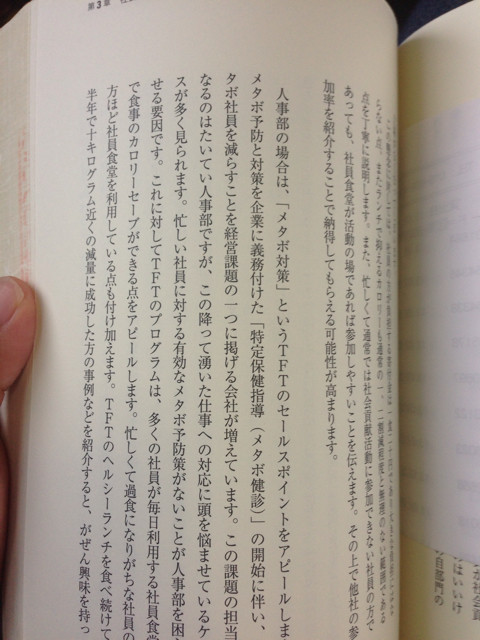 第3章
点を丁寧に説明します。また、忙しくて通常では社会貢献活動に参加できない社員の方で
あっても、社員食堂が活動の場であれば参加しやすいことを伝えます。その上で他社の参
加率を紹介することで納得してもらえる可能性が高まります。
人事部の場合は、「メタボ対策」というTFTのセールスポイントをアピールしま
メタボ予防と対策を企業に義務付けた「特定保健指導（メタボ健診）」の開始に伴い、
タボ社員を減らすことを経営課題の一つに掲げる会社が増えています。この課題の担当
なるのはたいてい人事部ですが、この降って湧いた仕事への対応に頭を悩ませているケ
スが多く見られます。忙しい社員に対する有効なメタボ予防策がないことが人事部を困
せる要因です。これに対してTFTのプログラムは、多くの社員が毎日利用する社員食
で食事のカロリーセーブができる点をアピールします。忙しくて過食になりがちな社員の
方ほど社員食堂を利用している点も付け加えます。TFTのヘルシーランチを食べ続けて
半年で十キログラム近くの減量に成功した方の事例などを紹介すると、がぜん興味を持っ